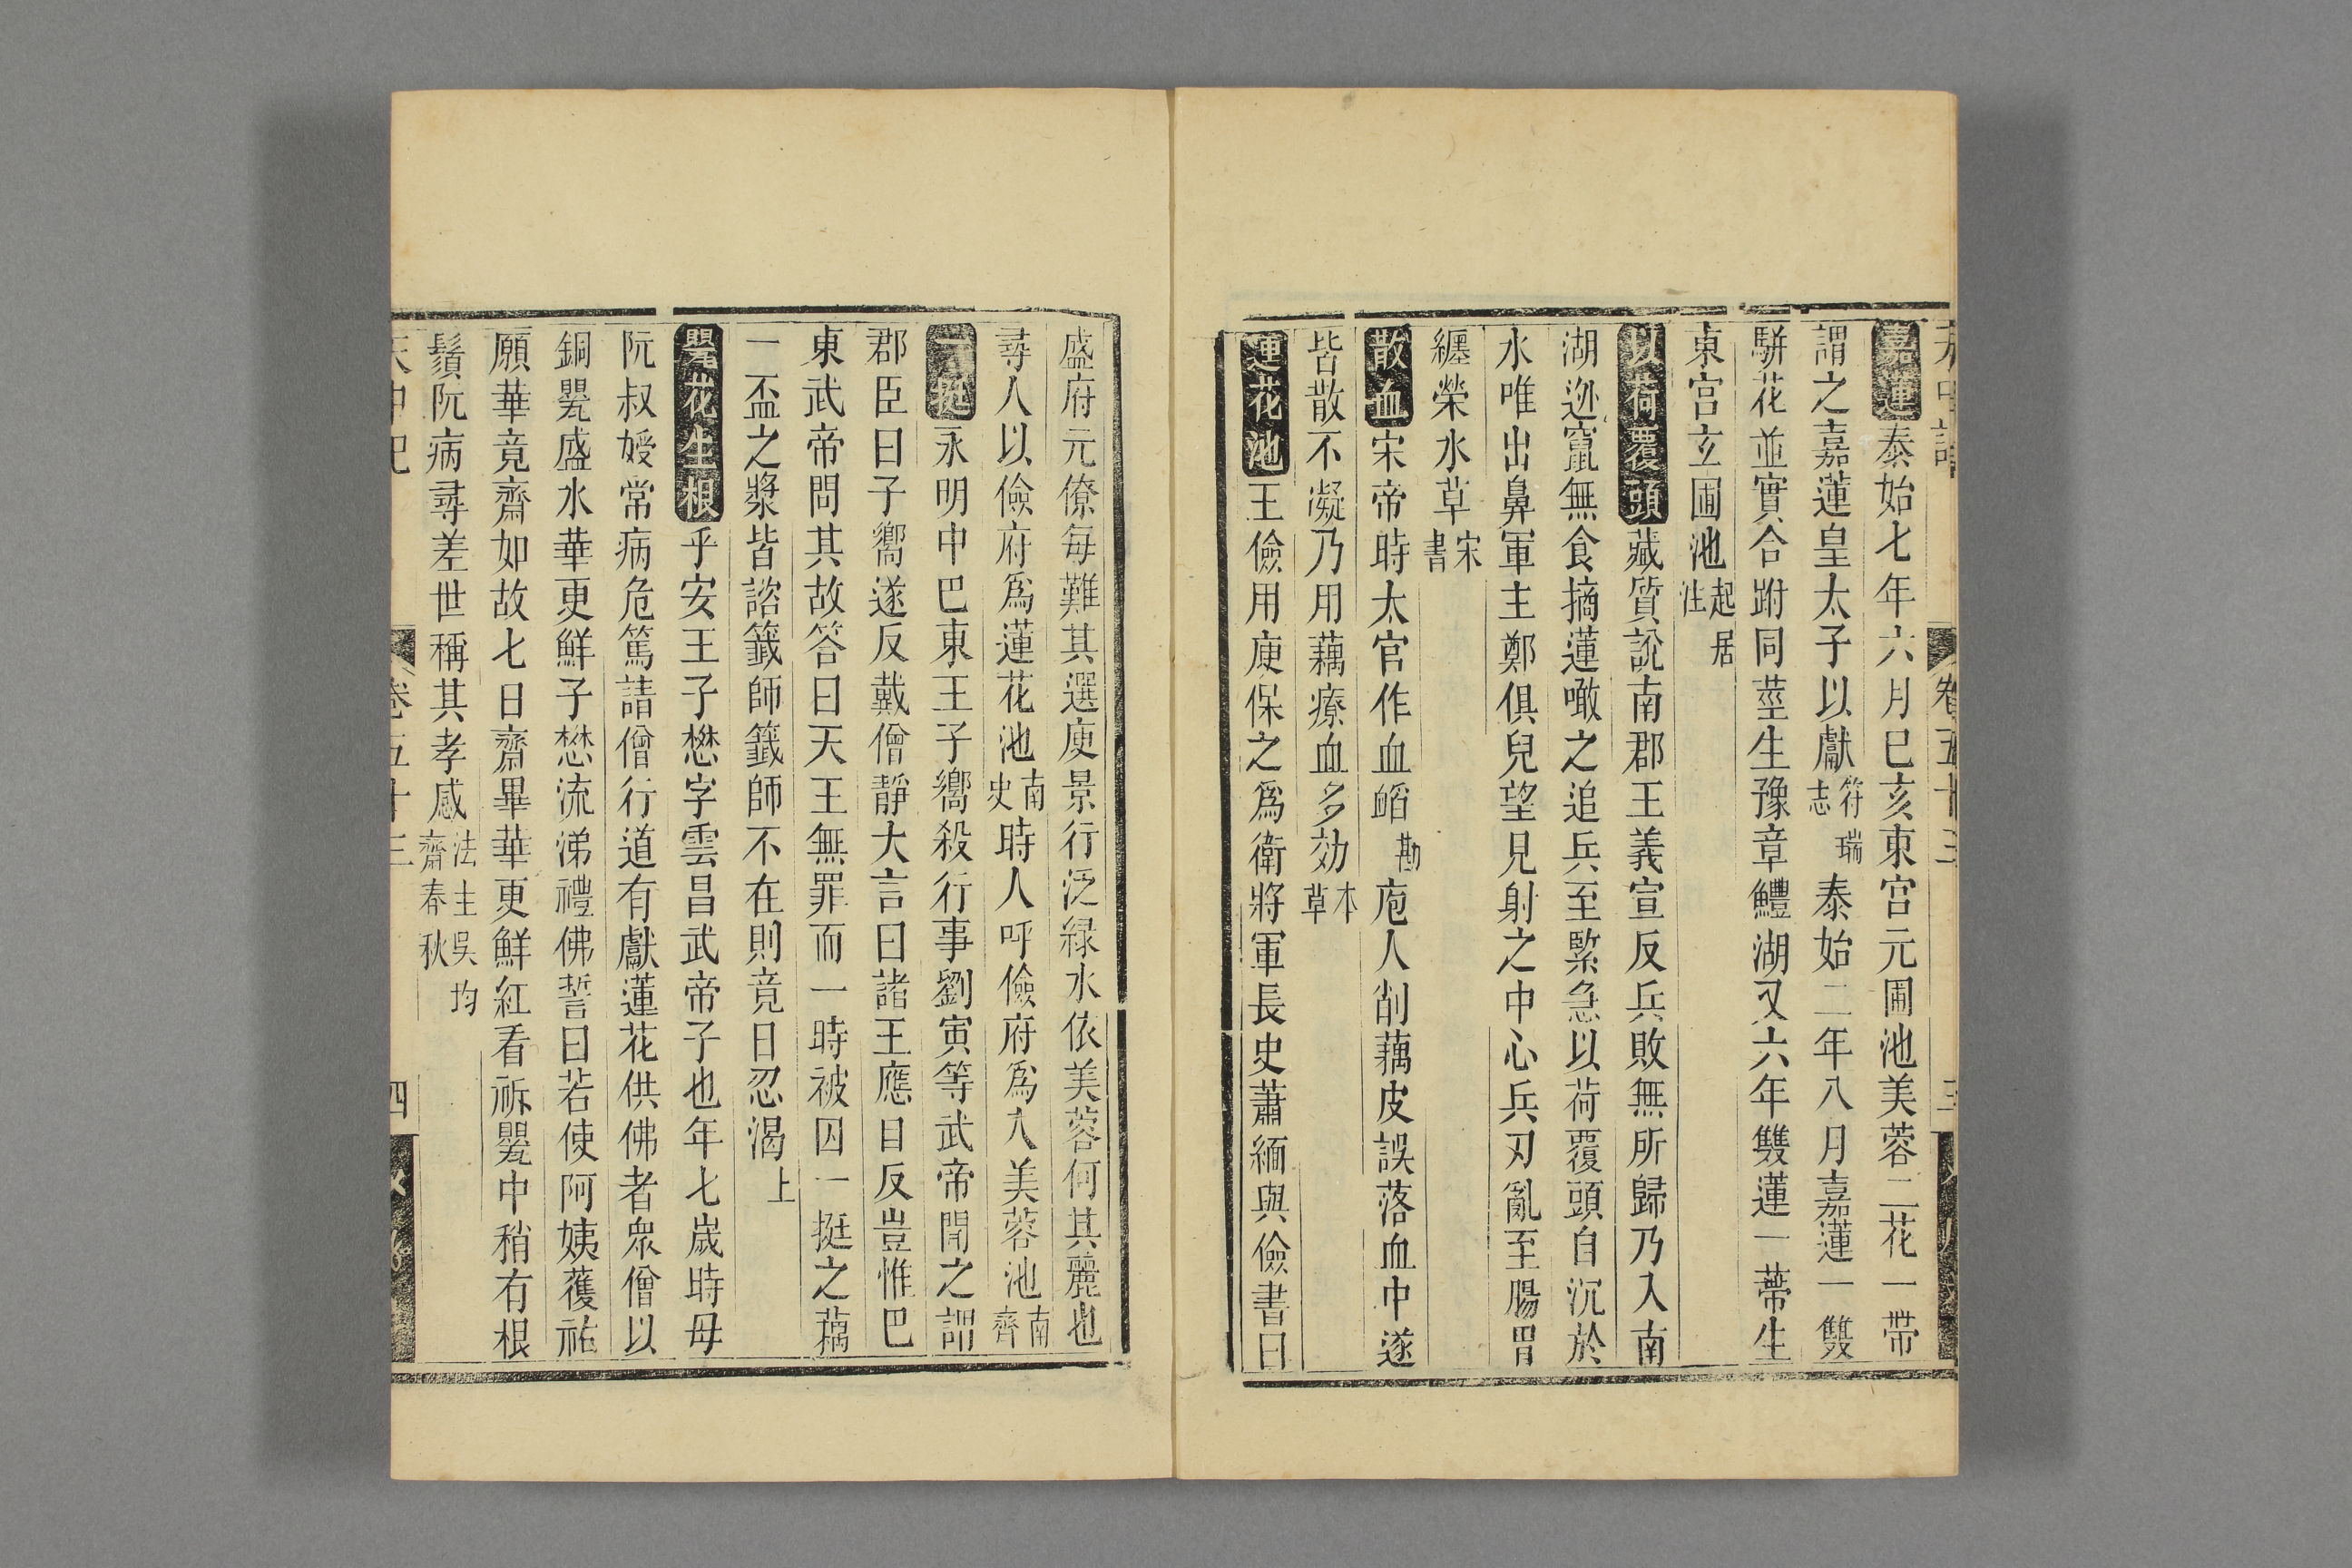 嘉蓮泰始七年六月巳亥東宮元圃池美蓉二花一帶
謂之嘉蓮皇太子以獻符瑞志泰始二年八月嘉蓮一雙
駢花並實合跗同莖生豫章鱧湖又六年雙蓮一蔕生
東宮玄圃池起居注
以荷覆頭藏質說南郡王義宣反兵敗無所歸乃入南
湖迯竄無食摘蓮噉之追兵至緊急以荷覆頭自沉於
水唯出鼻軍主鄭俱兒望見射之中心兵刃亂至腸胃
纏縈水草宋書
散血宋帝時太官作血䘓勘庖人削藕皮誤落血中遂
皆散不凝乃用藕療血多効本草
蓮花池王儉用庾保之爲衛將軍長史蕭緬與儉書曰
盛府元僚每難其選庾景行泛緑水依美蓉何其麗也
尋人以儉府爲蓮花池南史時人呼儉府爲入美蓉池南齊
一挺永明中巴東王子嚮殺行事劉寅等武帝聞之謂
郡臣曰子嚮遂反戴僧靜大言曰諸王應自反豈惟巴
東武帝問其故答曰天王無罪而一時被囚一挺之藕
一盃之漿皆諮籖師籖師不在則竟日忍渴上
罌花生根乎安王子懋字雲昌武帝子也年七歲時母
阮叔媛常病危篤請僧行道有獻蓮花供佛者衆僧以
銅罌盛水華更鮮子懋流涕禮佛誓曰若使阿姨獲祐
願華竟齋如故七日齋畢華更鮮紅看視罌中稍有根
鬚阮病尋差世稱其孝感法主吳均齋春秋
天中記
卷五十三
四